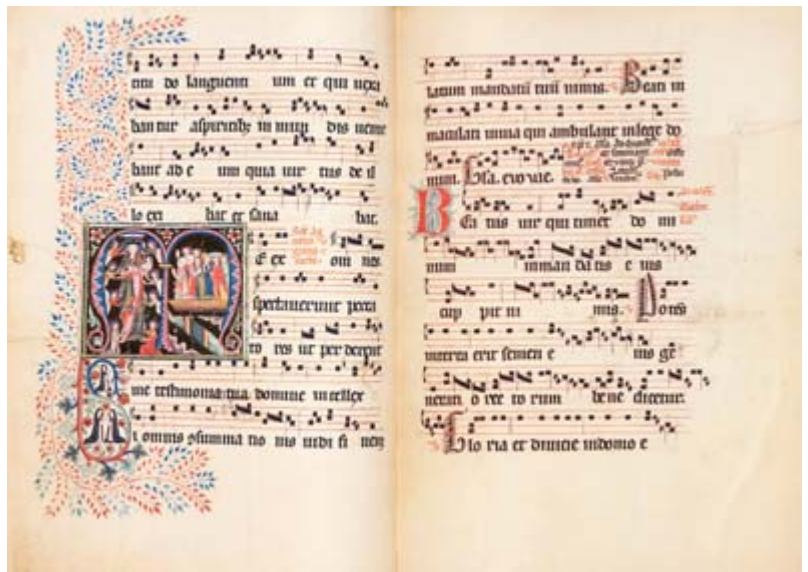 languenti um et qui uexa
ban tur aspiritibȝ in mun dis uenie
bant ad e um quia uir tus de il
lo exi bat et sana bat.
ME ex
spectauerunt pecca
to res ut per derent
me testimonia tua domine intellex
i omnis ɔsumma tio nis uidi fi nem
latum mandatū tuū nimis. Beati in
maculati inuia qui ambulant inlege do
euouae.
BEa tus uir qui timet do mi
num inman da tis e ius
cup pit ni mis. Potēs
interra erit semen e ius gē
rec to rum bene dicetur.
Glo ria et diuicie indomo e